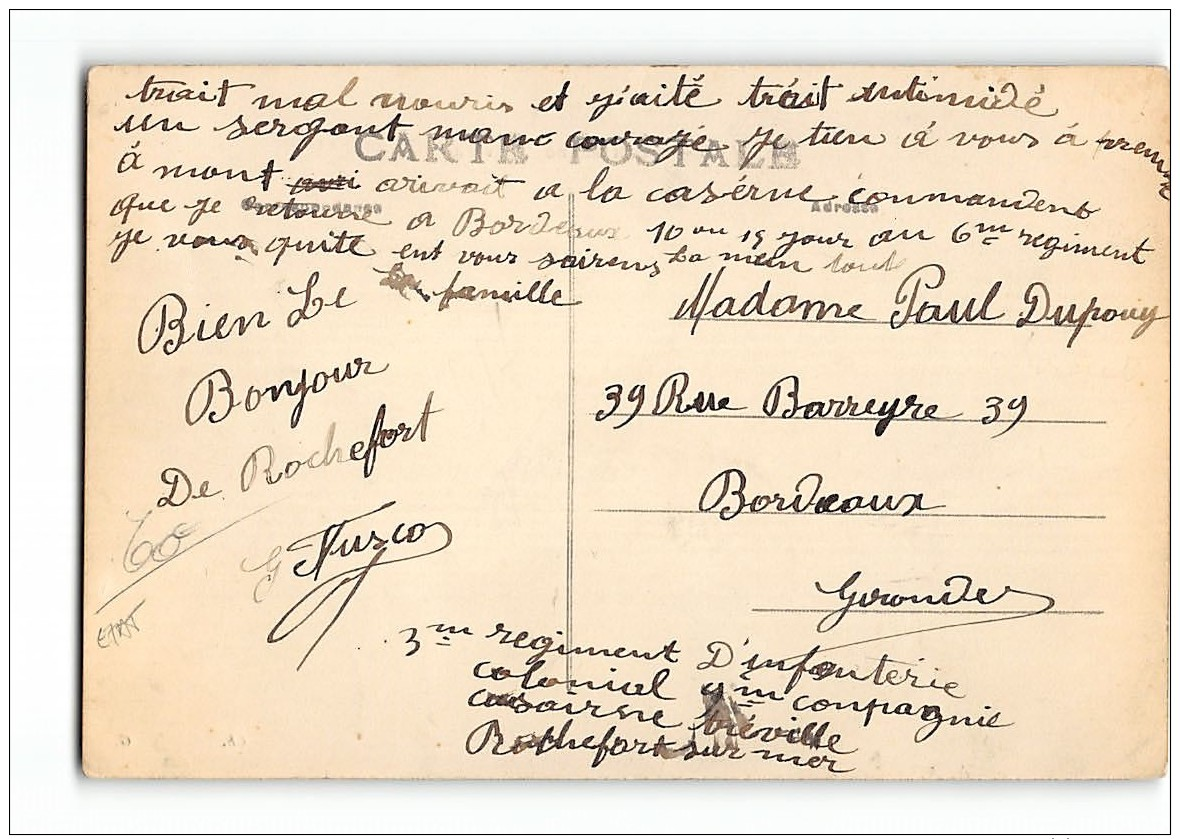 trait mal nouris et j'aité trait intimidé
un sergant manc courage je tien a vous a
CARTE POSTALE
à mont arivait a la casérne commandent
Correspondance
Adresse
que je retourne a Bordeaux 10 ou 15 jour au 6me regiment
je vous quite ent vous sairens La mein tout
La famille
Bien Le
Bonjour
De Rochefort
G Fusco
60c
ETAT
Madame Paul Dupouy
39 Rue Barreyre 39
Bordeaux
Gironde
3me regiment D'infanterie
colonial 4me conpagnie
casairne tréville
Rochefort sur mer